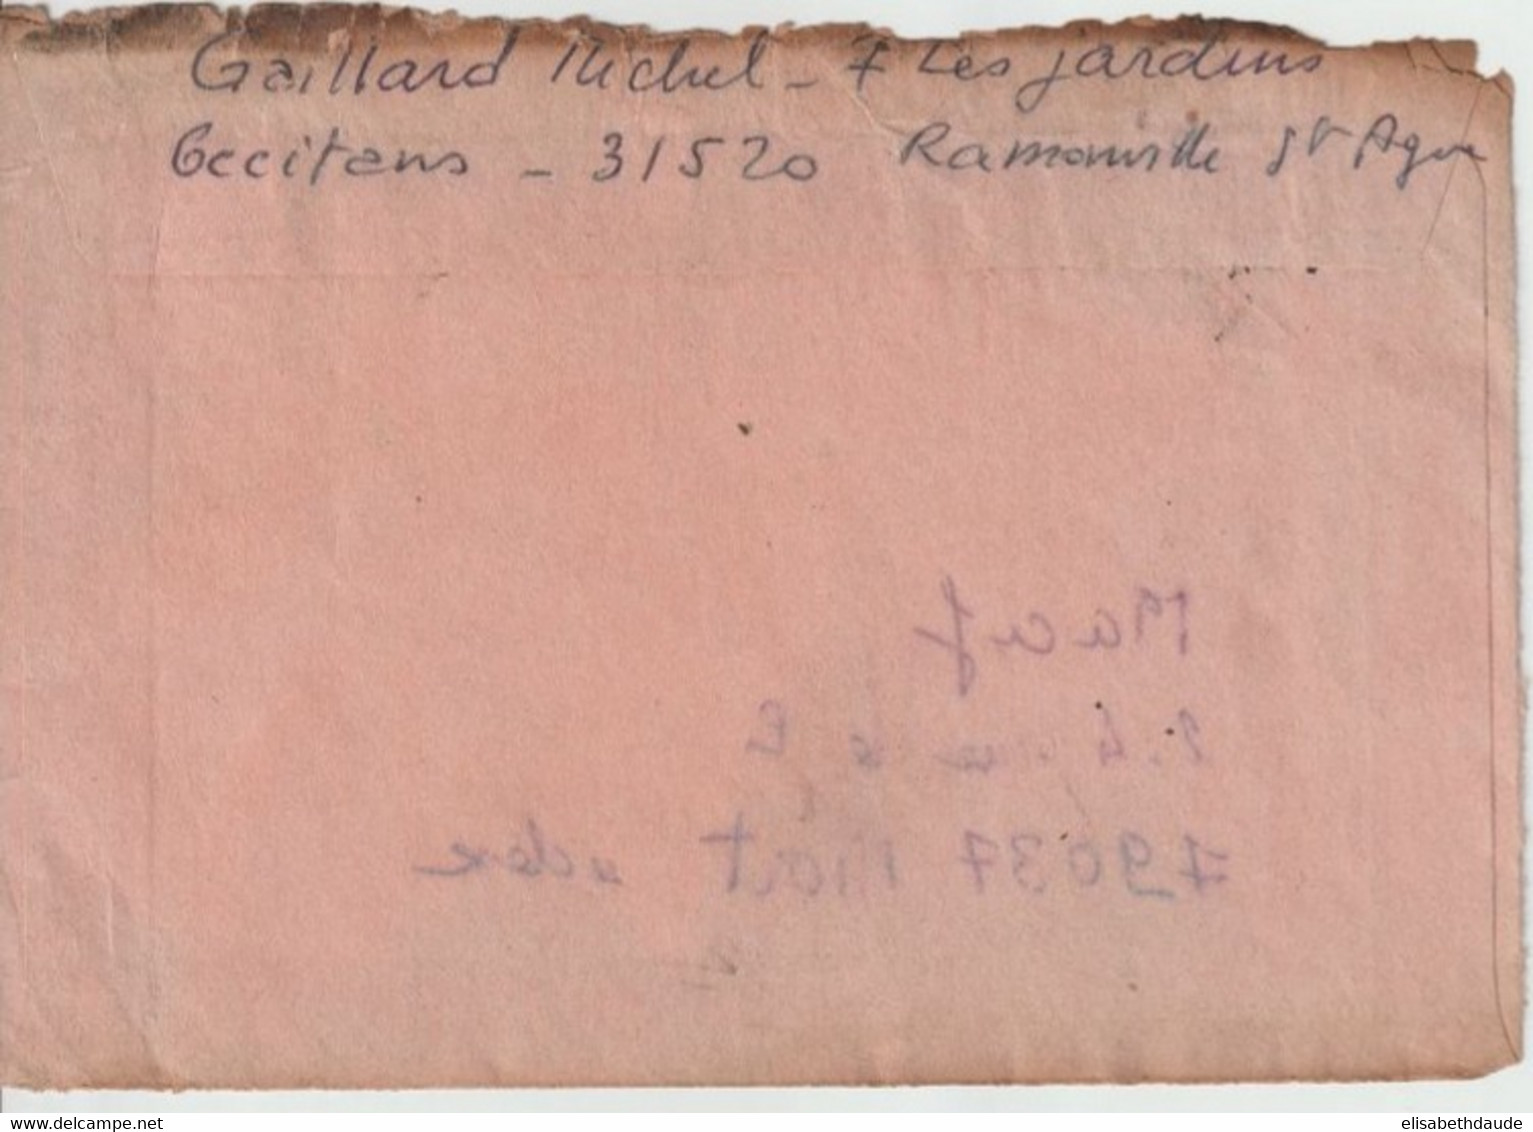 Gaillard Michel - 7 Les jardins
Occitans - 31520 Ramonville St Agne
Macif
79037 Niort cedex
www.delcampe.net
elisabethdaude